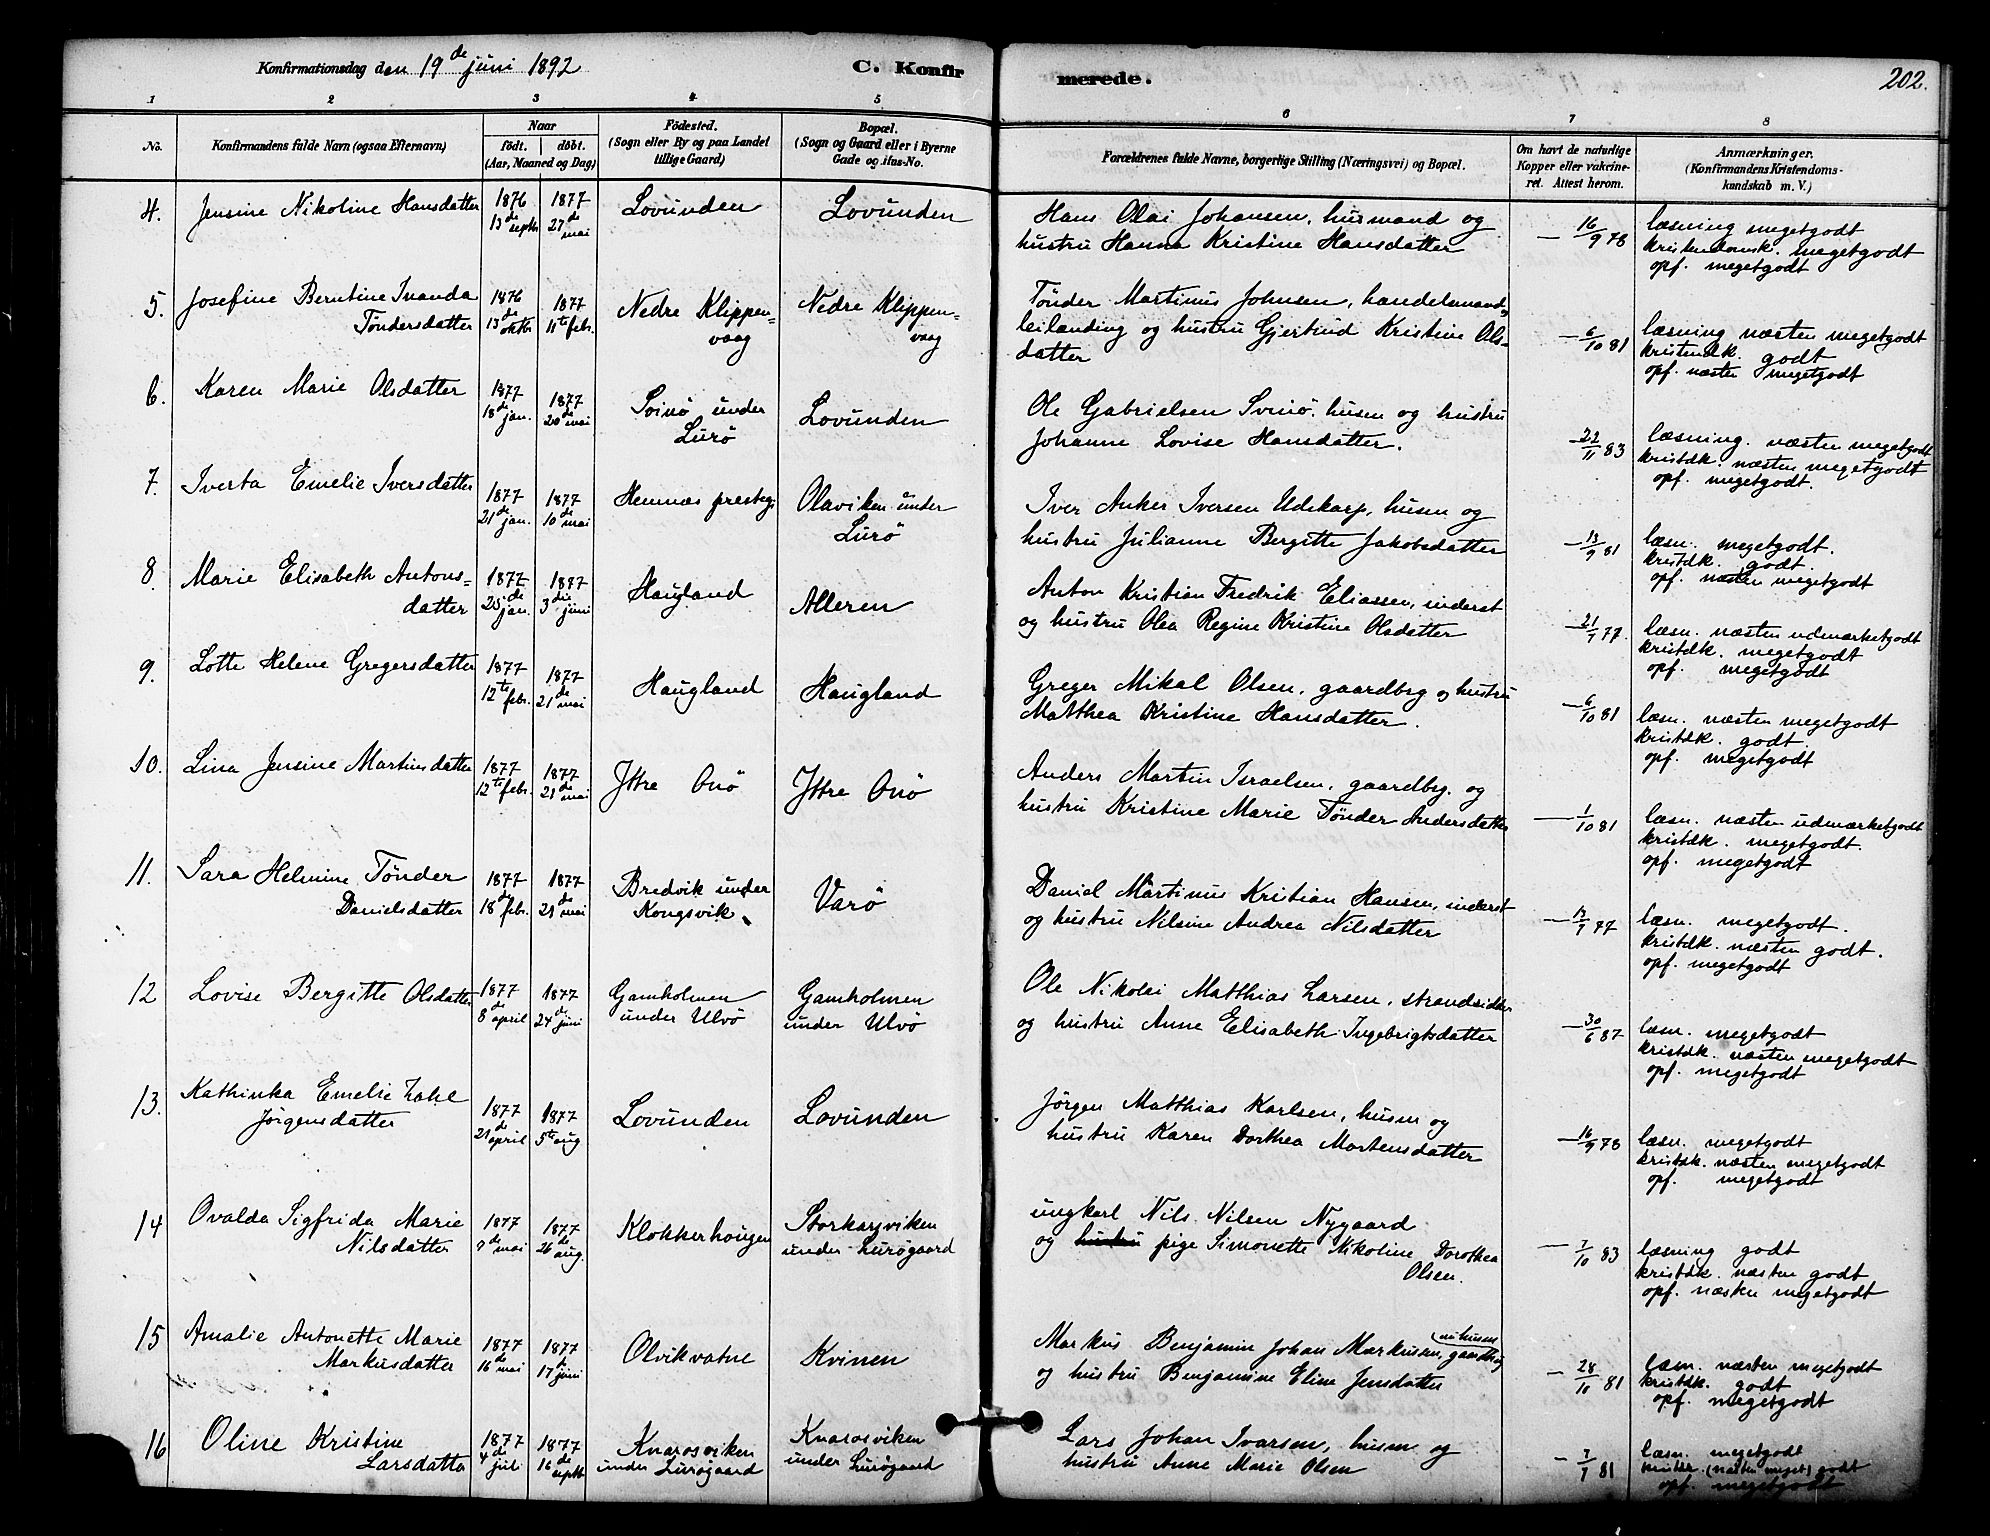 Konfirmationsdag den 19de juni 1892
C. Konfirmerede.
202.
1 2 3 4 5 6 7 8
No.
Konfirmandens fulde Navn (ogsaa Efternavn)
Naar
födt. döbt.
(Aar, Maaned og Dag)
Födested.
(Sogn eller By og paa Landet
tillige Gaard)
Bopæl.
(Sogn og Gaard eller i Byerne
Gade og Hus-No.
Forældrenes fulde Navne, borgerlige Stilling (Næringsvei) og Bopæl.
Om havt de naturlige
Kopper eller vakcine-
ret. Attest herom.
Anmærkninger.
(Konfirmandens Kristendoms-
kundskab m. V.)
4. Jensine Nikoline Hansdatter
1876 13de septbr
1877 27de mai
Lovunden
Lovunden
Hans Olai Johansen, husmand og
hustru Hanna Kristine Hansdatter
16/9 78
læsning megetgodt
kristendomsk. megetgodt
opf. megetgodt
5. Josefine Berntine Ivanda
Töndersdatter
1876 13de oktbr
1877 11te febr.
Nedre Klippen-
vaag
Nedre Klippen-
vaag
Tönder Martinus Johnsen, handelsmand og
leilænding og hustru Gjertrud Kristine Ols-
datter
6/10 81
læsning næsten megetgodt
kristendk. godt
opf. næsten megetgodt
6. Karen Marie Olsdatter
1877 18de jan.
1877 20de mai
Svinö under
Lurö
Lovunden
Ole Gabrielsen Svinö, husm og hustru
Johanne Lovise Hansdatter.
22/11 83
læsning. næsten megetgodt
kristdk. næsten megetgodt
opf. megetgodt.
7. Iverta Emelie Iversdatter
1877 21de jan.
1877 10de mai
Hemnæs presteg.
Olaviken under
Lurö
Iver Anker Iversen Udskarp, husm og
hustru Julianne Bergitte Jakobsdatter
13/9 81
læsn. megetgodt.
kristdk. godt.
opf. næsten megetgodt
8. Marie Elisabeth Antons-
datter
1877 25de jan.
1877 3die juni
Haugland
Alleren
Anton Kristian Fredrik Eliassen, inderst
og hustru Olea Regine Kristine Olsdatter
21/7 77.
læsn. næsten udmærketgodt
kristdk. megetgodt
opf. megetgodt
9. Lotte Helene Gregersdatter
1877 12te febr.
1877 21de mai
Haugland
Haugland
Greger Mikal Olsen, gaardbrg og hustru
Matthea Kristine Hansdatter.
6/10 81
læsn. næsten megetgodt
kristdk. godt.
opf. megetgodt
10. Lina Jensine Martinsdatter
1877 12te febr.
1877 21de mai
Ytre Onö
Ytre Onö
Anders Martin Israelsen, gaardbrg. og
hustru Kristine Marie Tönder Andersdatter
1/10 81
læsn. næsten udmærketgodt
kristdk. megetgodt.
opf. megetgodt
11. Sara Helmine Tönder
Danielsdatter
1877 18de febr.
1877 21de mai
Bredvik under
Kongsvik
Varö
Daniel Martinus Kristian Hansen, inderst
og hustru Nilsine Andrea Nilsdatter
13/7 77
læsn. megetgodt.
kristdk. næsten godt.
opf. megetgodt
12 Lovise Bergitte Olsdatter
1877 8de april
1877 24de juni
Gamholmen
under Ulvö
Gamholmen
under Ulvö
Ole Nikolai Matthias Larsen, strandsidder
og hustru Anne Elisabeth Ingebrigtsdatter
30/6 87
læsn. megetgodt
kristdk. næsten megetgodt
opf. megetgodt
13. Kathinka Emelie Zahl
Jörgensdatter
1877 21de april
1877 5te aug.
Lovunden
Lovunden
Jörgen Matthias Karlsen, husm og
hustru Karen Dorthea Mortensdatter
16/9 78
læsn. megetgodt
kristdk. næsten megetgodt
opf. megetgodt
14 Ovalda Sigfrida Marie
Nilsdatter
1877 9de mai
1877 26de aug.
Klokkerhougen
Storkarsviken
under Lurögaard
ungkarl Nils Nilsen Nygaard
og hustru pige Simonette Nikoline Dorothea
Olsen.
7/10 83
læsning godt
kristdk. næsten godt
opf. næsten megetgodt
15 Amalie Antonette Marie
Markusdatter
1877 16de mai
1877 17de juni
Olvikvatne
Kvinen
Markus Benjamin Johan Markussen, gaardbrg
og hustru Benjamine Eline Jensdatter
28/10 81
læsn. næsten megetgodt
kristdk. godt
opf. megetgodt
16 Oline Kristine
Larsdatter
1877 4de juli
1877 16de septbr
Knarosviken
under Lurögaard
Knarosviken
under Lurögaard
Lars Johan Ivarsen, husm og
hustru Anne Marie Olsen
7/7 81
læsn. megetgodt
(næsten meget) godt
opf. megetgodt